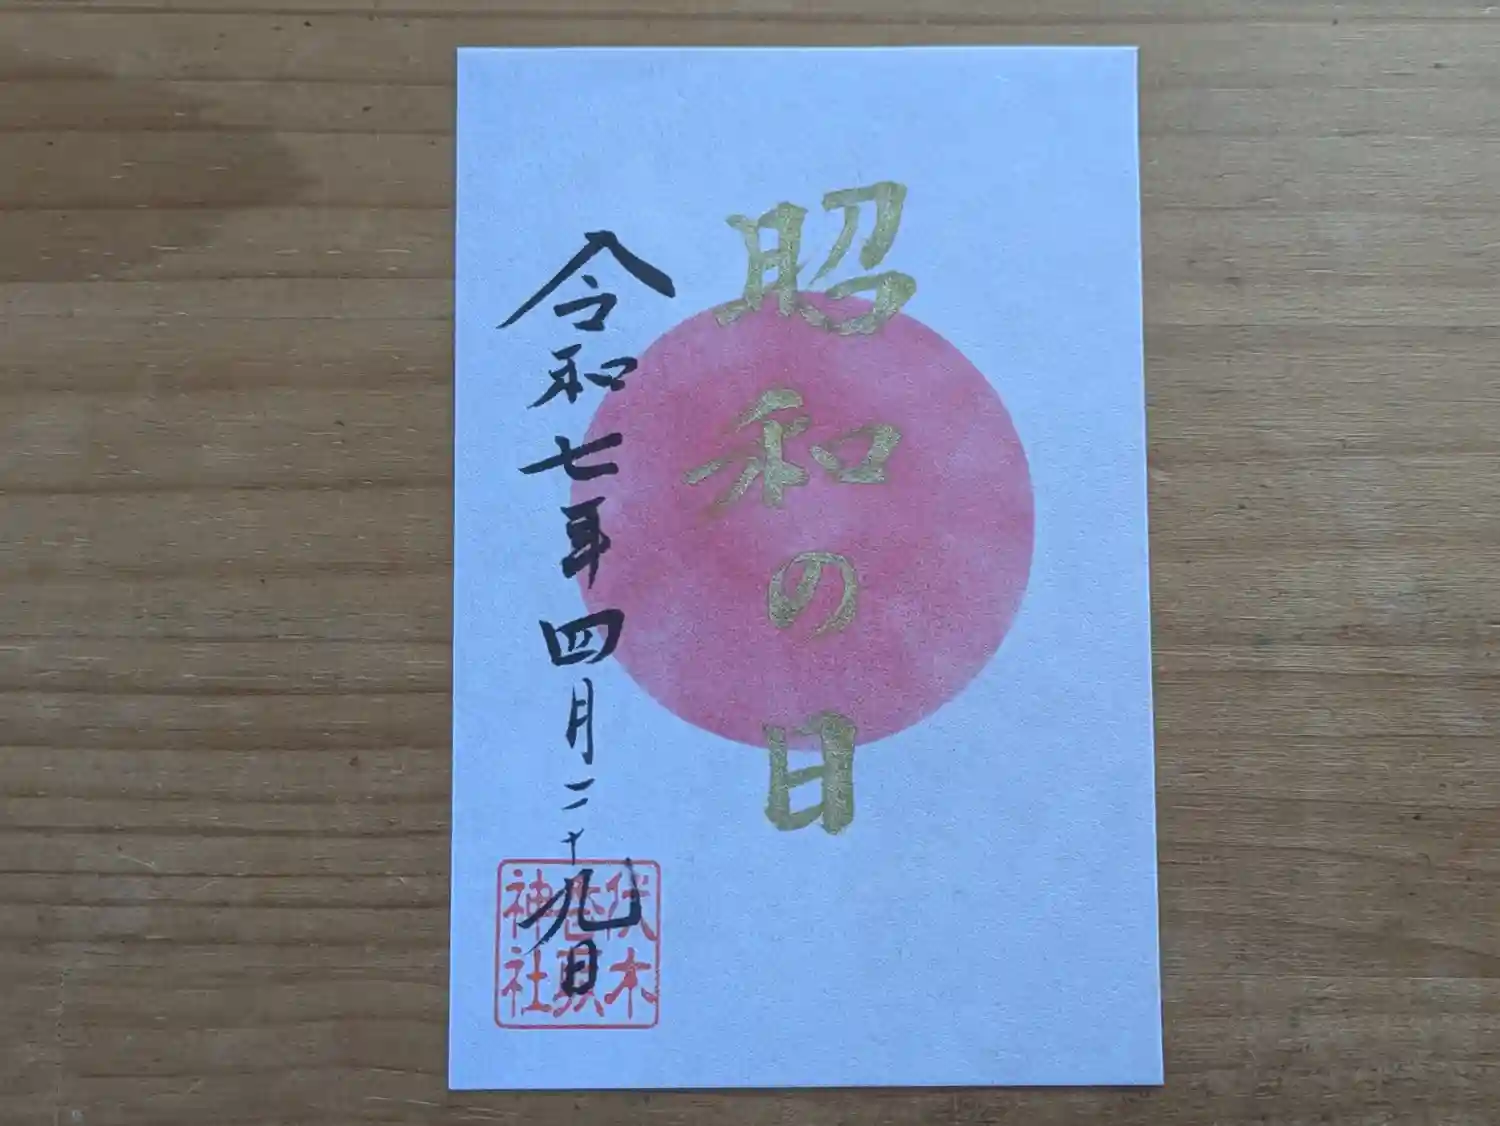 昭和の日
令和七年四月二十九日
伏木
神社